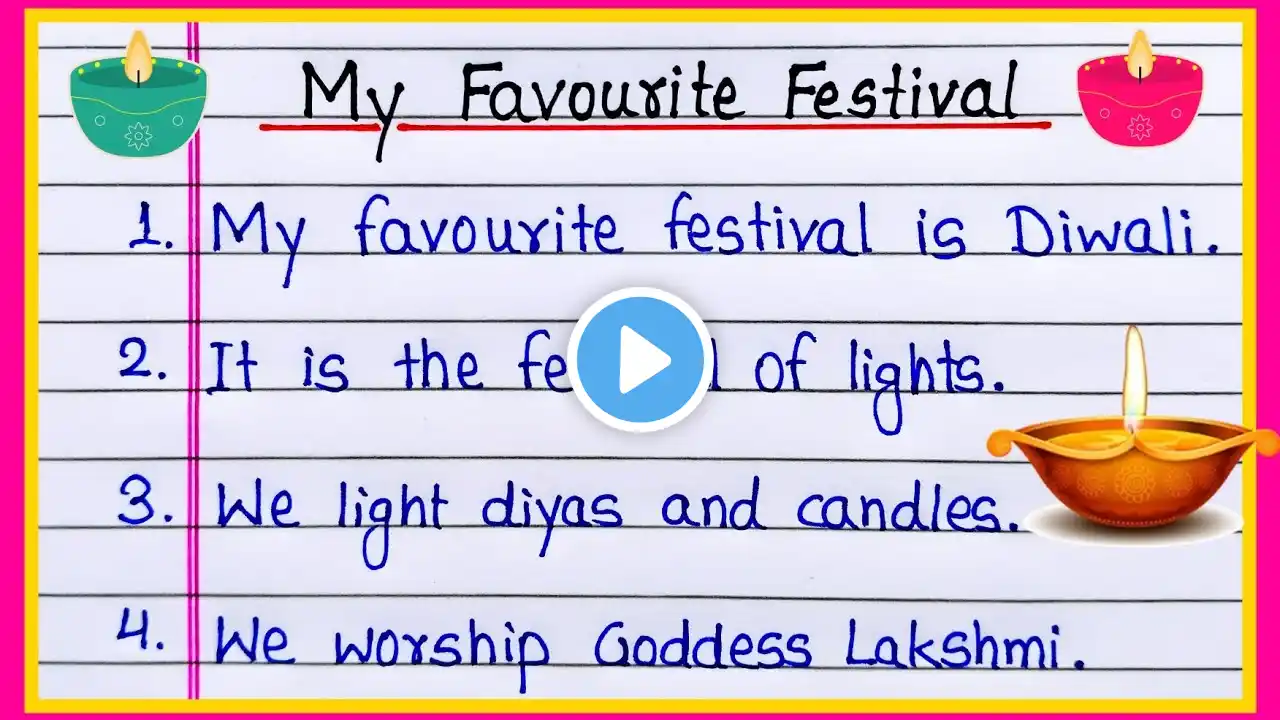 My Favourite Festival
1. My favourite festival is Diwali.
2. It is the of lights.
3. We light diyas and candles.
4. We worship Goddess Lakshmi.